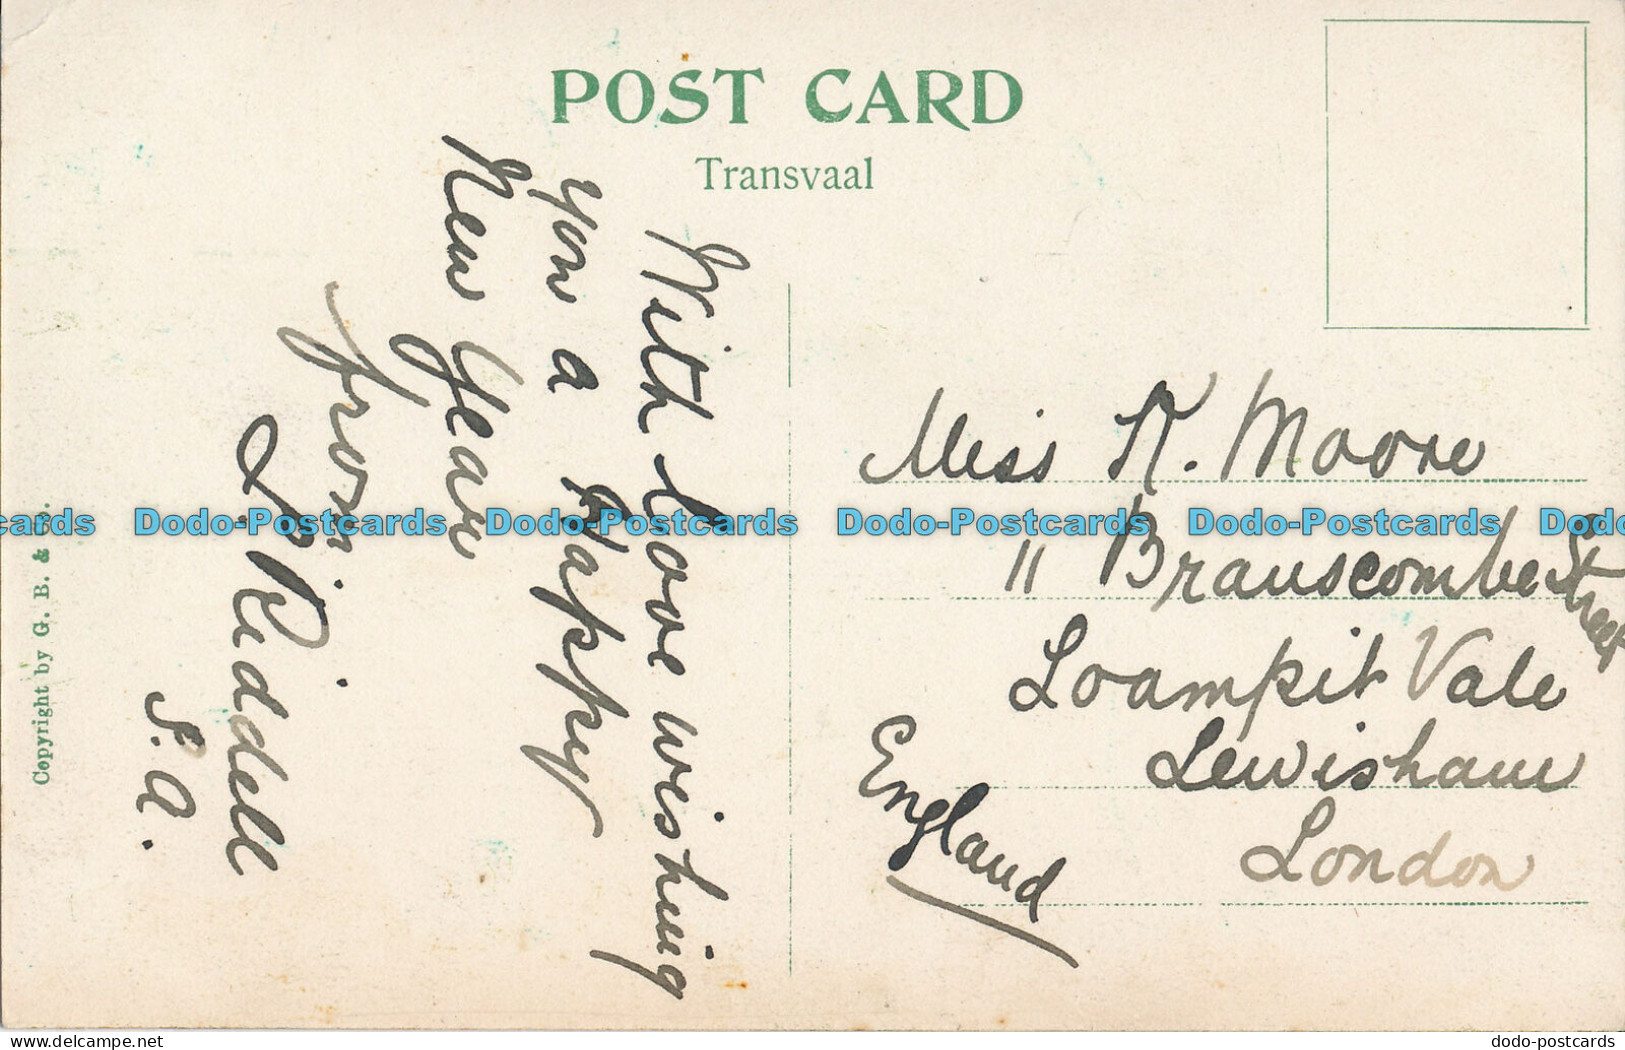 POST CARD
Transvaal
With love wishing
you a Happy
New Year
from
L. Riddell
S.A.
Miss K. Moore
11 Branscombe Street
Loampit Vale
Lewisham
London
England
Copyright by G. B. & Co.
cards Dodo-Postcards Dodo-Postcards Dodo-Postcards Dodo-Postcards Dodo
delcampe.net
dodo-postcards